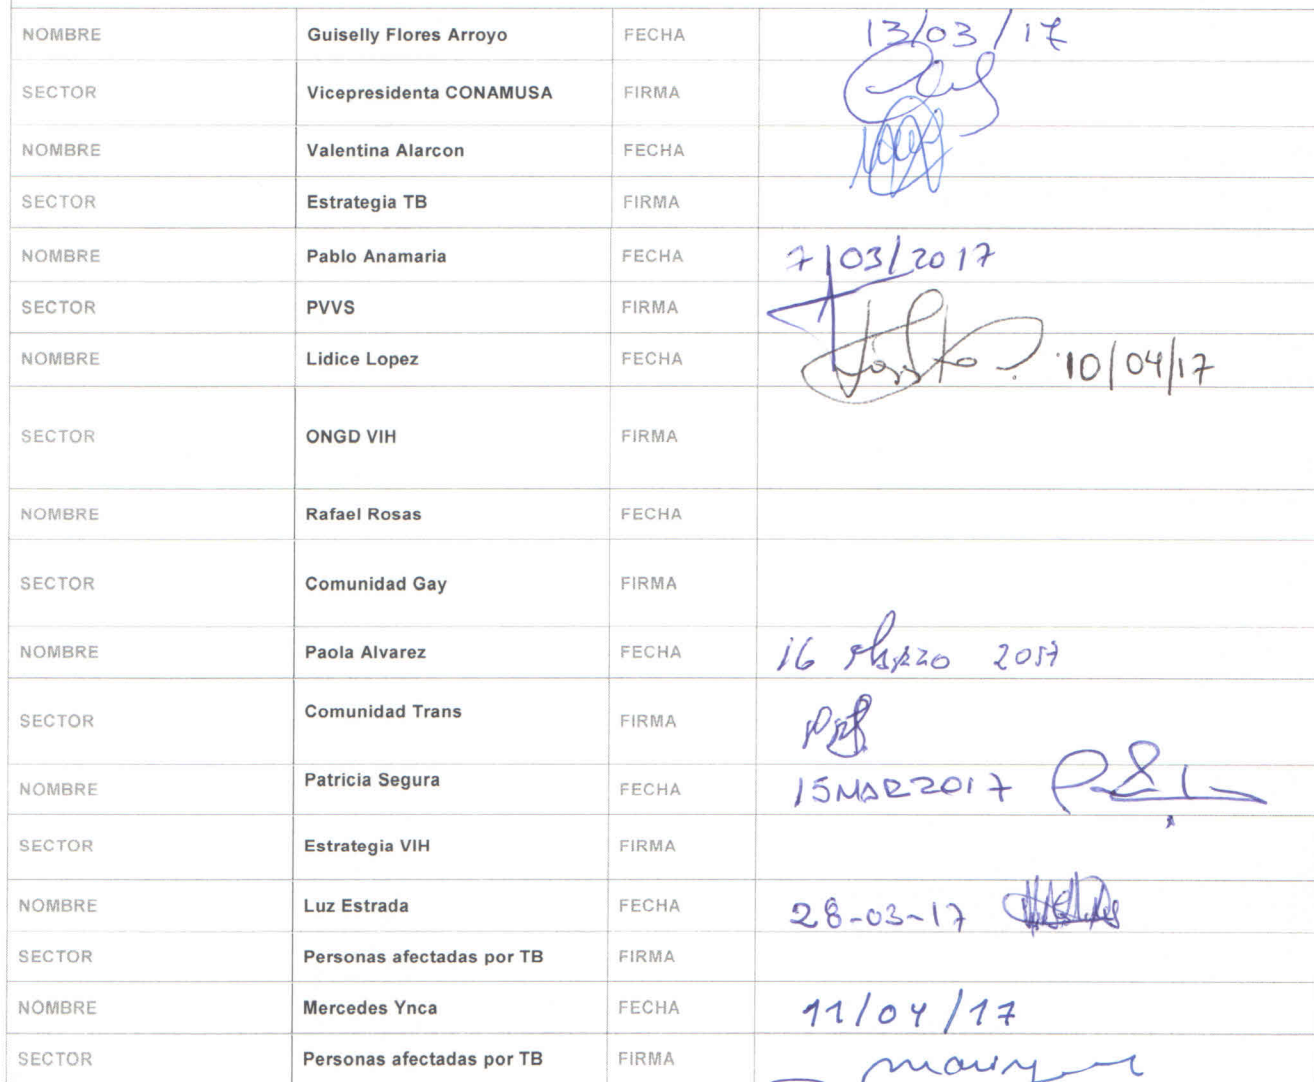 NOMBRE Guiselly Flores Arroyo FECHA 13/03/17
SECTOR Vicepresidenta CONAMUSA FIRMA
NOMBRE Valentina Alarcon FECHA
SECTOR Estrategia TB FIRMA
NOMBRE Pablo Anamaria FECHA 7/03/2017
SECTOR PVVS FIRMA
NOMBRE Lidice Lopez FECHA 10/04/17
SECTOR ONGD VIH FIRMA
NOMBRE Rafael Rosas FECHA
SECTOR Comunidad Gay FIRMA
NOMBRE Paola Alvarez FECHA 16 Marzo 2017
SECTOR Comunidad Trans FIRMA
NOMBRE Patricia Segura FECHA 15 MAR 2017
SECTOR Estrategia VIH FIRMA
NOMBRE Luz Estrada FECHA 28-03-17
SECTOR Personas afectadas por TB FIRMA
NOMBRE Mercedes Ynca FECHA 11/04/17
SECTOR Personas afectadas por TB FIRMA